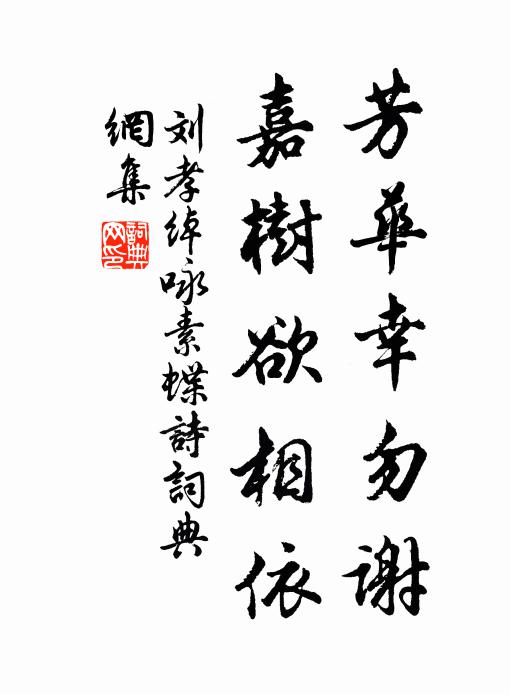 芳華幸勿謝
嘉樹欲相依
刘孝绰咏素蝶詩詞典
網集
詞典
网印